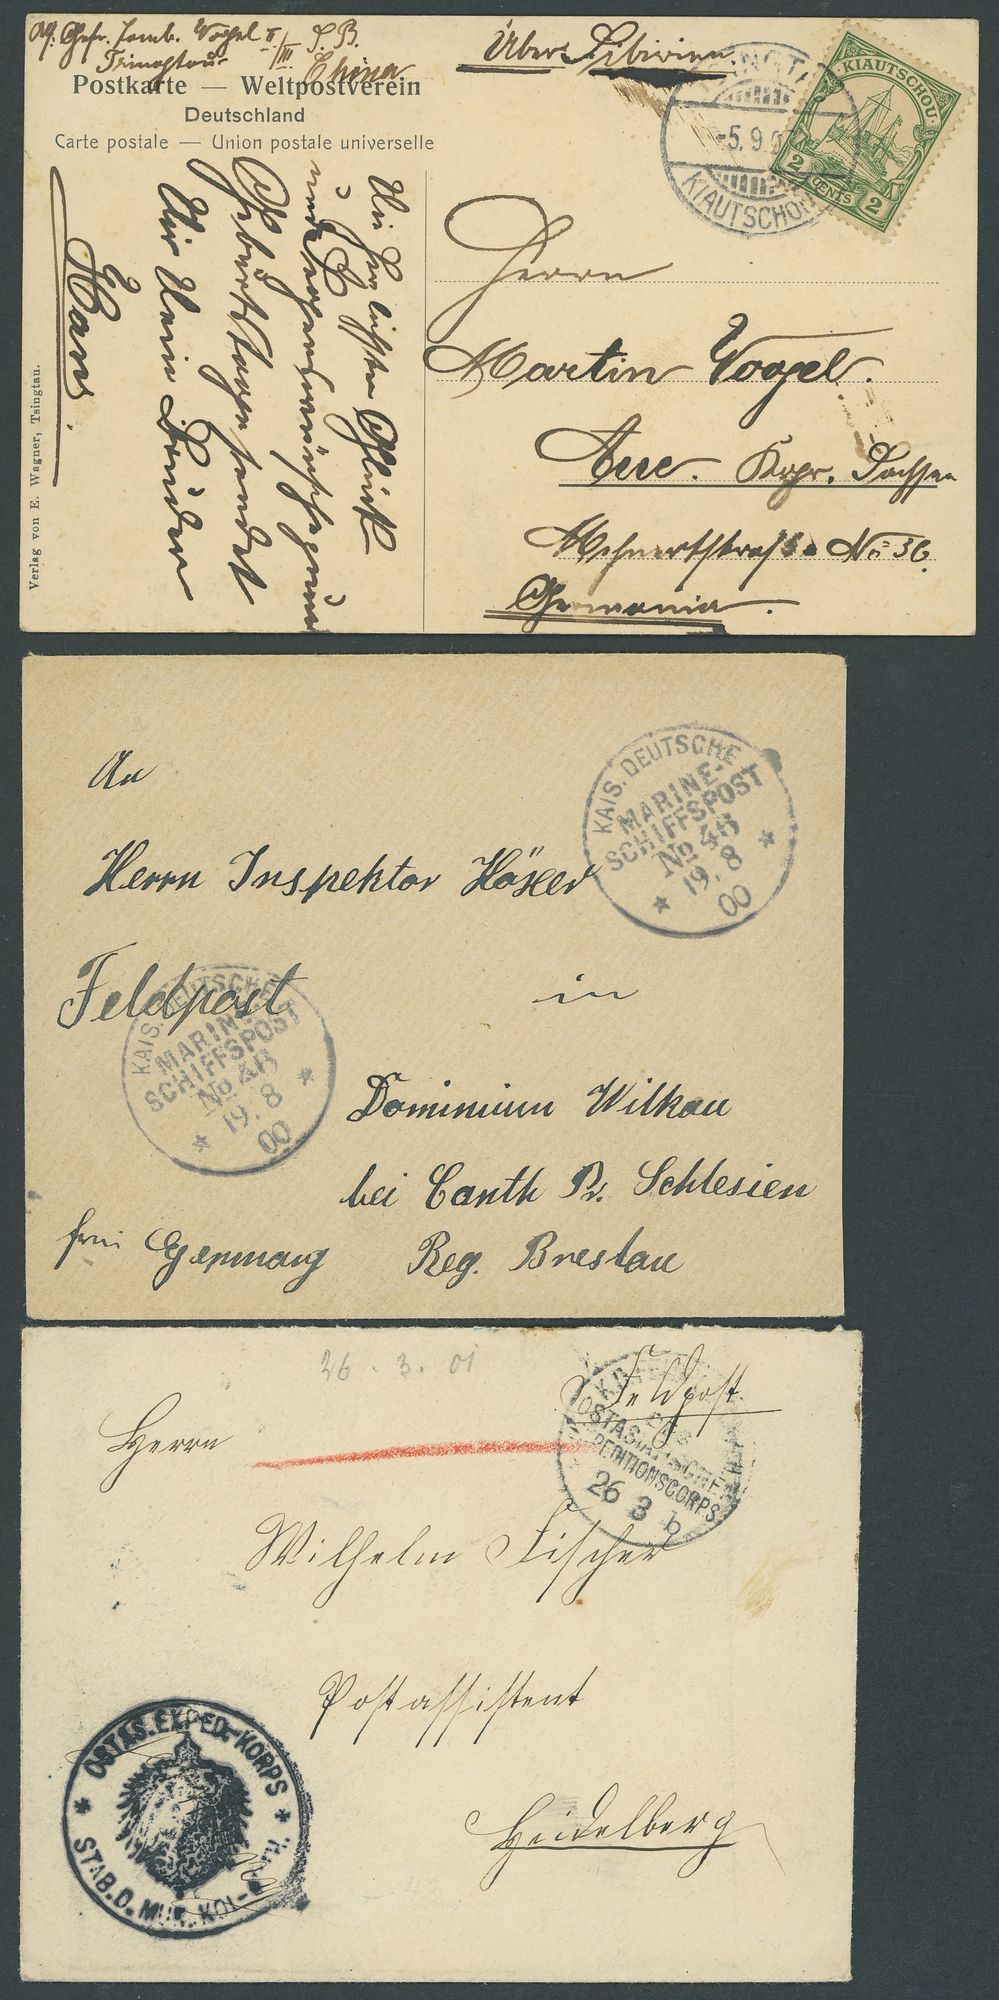 Vogel
III S. B.
Tsingtau
China
Postkarte — Weltpostverein
Deutschland
Carte postale — Union postale universelle
Über Sibirien.
TSINGTAU
-5. 9.
KIAUTSCHOU
KIAUTSCHOU
2 CENTS 2
Die herzlichsten Glück
und Segenswünsche zum
Geburtstage sendet
Dir Dein Bruder
Hans.
Verlag von E. Wagner, Tsingtau.
Herrn
Martin Vogel.
Aue. Kgr. Sachsen
Mehnertstraße No 36.
Germania.
An
Herrn Inspektor
Feldpost
in
Dominium Wilkau
bei Canth Pr. Schlesien
frei Germany
Reg. Breslau
KAIS. DEUTSCHE
MARINE-
SCHIFFSPOST
No 46
19. 8
00
KAIS. DEUTSCHE
MARINE-
SCHIFFSPOST
No 46
19. 8
00
26. 3. 01
Feldpost.
Herrn
OSTASIATISCHE
EXPEDITIONSCORPS
26 3
Wilhelm Fischer
Postassistent
Heidelberg
OSTAS. EXPED.-KORPS
STAB. D. MUN. KOL.